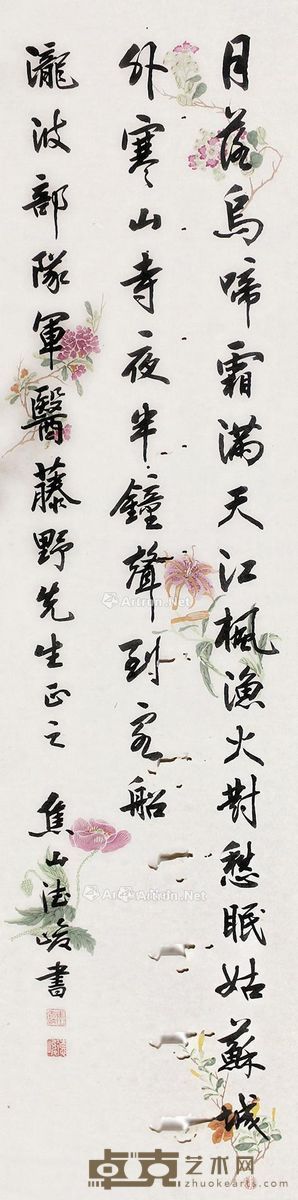 月落烏啼霜滿天江楓漁火對愁眠姑蘇城
外寒山寺夜半鐘聲到客船
瀧波部隊軍醫藤野先生正之 焦山德峻書
Artron.Net
Artron.Net
Artron.Net
Artron.Net
卓克艺术网
zhuokearts.com